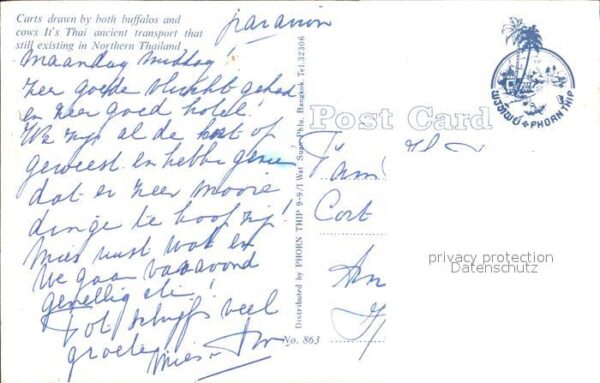 Carts drawn by both buffalos and
cows It's Thai ancient transport that
still existing in Northern Thailand
par avion
Maandag middag!
zeer goede vlucht gehad
en zeer goed hotel!
We zijn al de hort op
geweest en hebbe gezien
dat er zeer mooie
dinge te koop zij!
Mies rust wat en
we gaan vanavond
gezellig ete!
Tot schijfs veel
groete
Mies
Distributed by PHORN THIP 9-9/1 Wat Suan Phlu, Bangkok. Tel.32306
No. 863
Post Card
PHORN THIP
Fami
Cort
privacy protection
Datenschutz